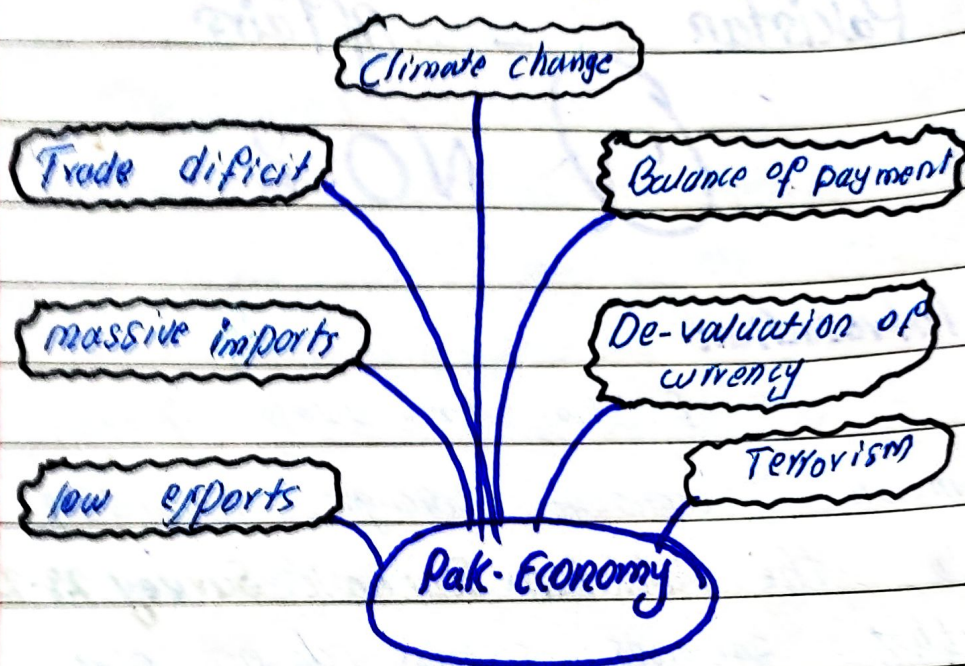 Climate change
Trade dificit
Balance of payment
massive imports
De-valuation of
currency
Terrorism
low exports
Pak-Economy